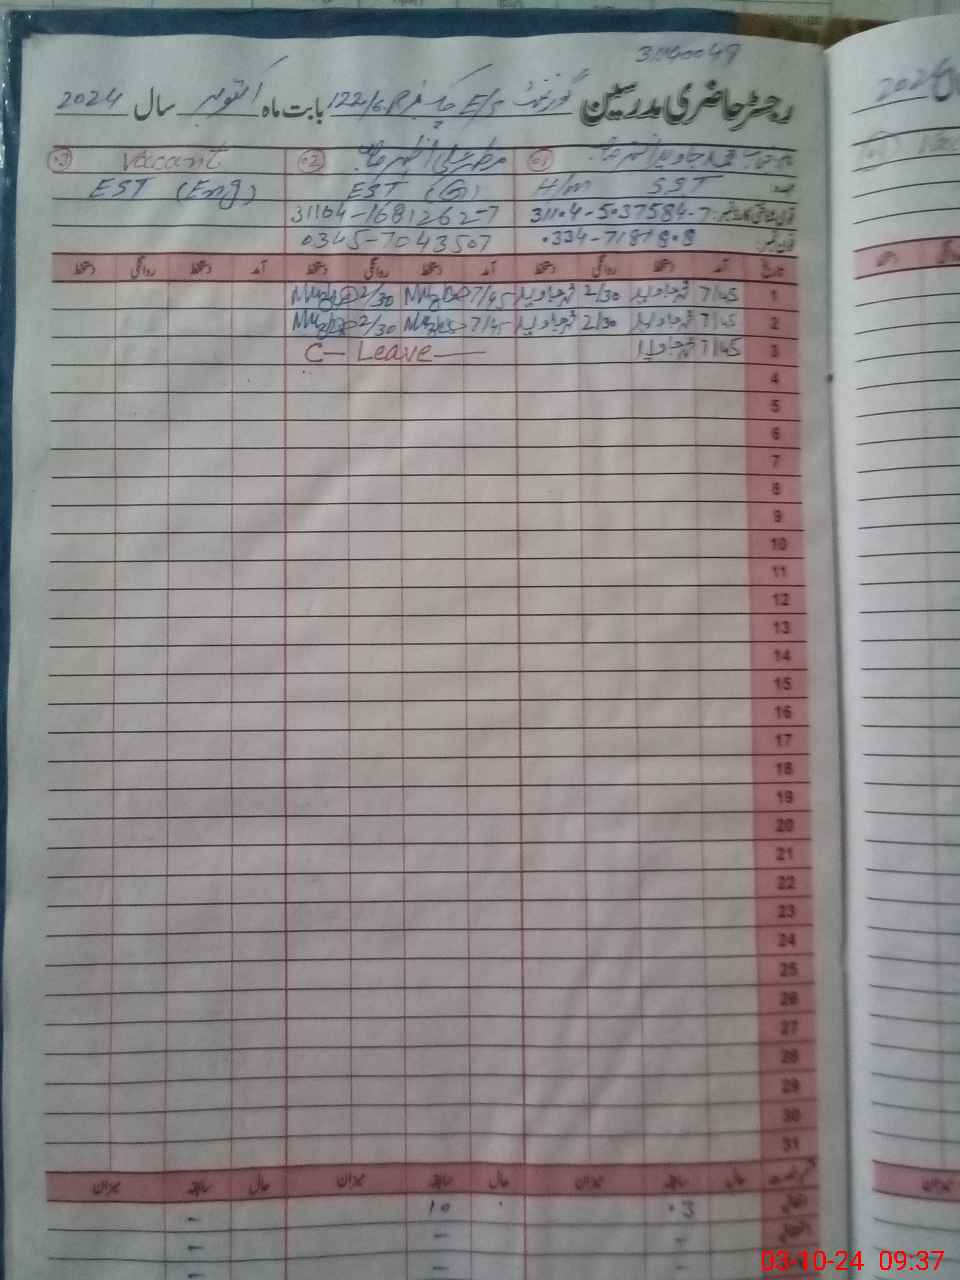 31140049
رجسٹر حاضری مدرسین گورنمنٹ E/S چک نمبر 122/6.R بابت ماہ اکتوبر سال 2024
01 02 مظہر علی 03 Vacant
H/m SST EST (G) EST (Eng)
31104-5037584-7 31104-1681262-7
0334-7181808 0345-7043507
تاریخ آمد دستخط روانگی دستخط آمد دستخط روانگی دستخط آمد دستخط روانگی دستخط
1 7/45 محمد جاوید 2/30 محمد جاوید 7/45 2/30
2 7/45 محمد جاوید 2/30 محمد جاوید 7/45 2/30
3 7/45 محمد جاوید C- Leave
4
5
6
7
8
9
10
11
12
13
14
15
16
17
18
19
20
21
22
23
24
25
26
27
28
29
30
31
حال سابقہ میزان حال سابقہ میزان حال سابقہ میزان
اتفاقیہ 03 10 -
- - -
- - -
03-10-24 09:37
2024